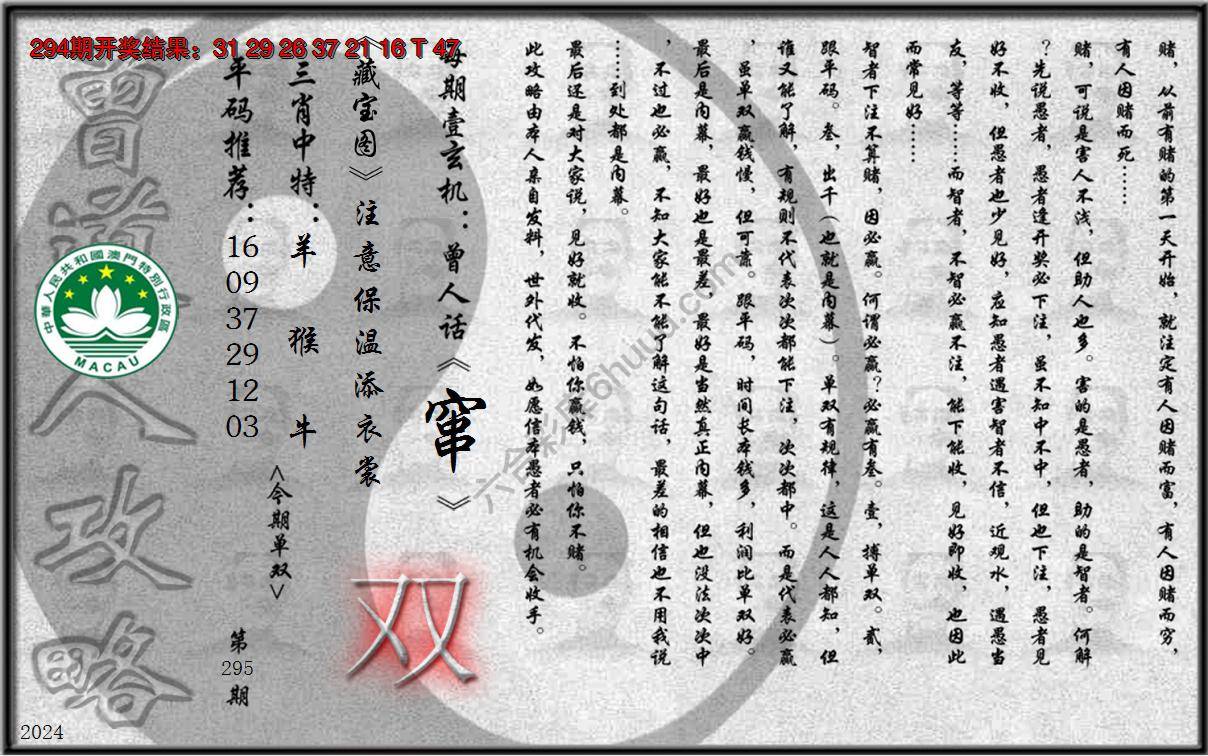 294期开奖结果：31 29 26 37 21 16 T 47
赌，从前有赌的第一天开始，就注定有人因赌而富，有人因赌而穷，
有人因赌而死……
赌，可说是害人不浅，但助人也多。害的是愚者，助的是智者。何解
？先说愚者，愚者逢开奖必下注，虽不知中不中，但也下注，愚者见
好不收，但愚者也少见好，应知愚者遇害智者不信，近观水，遇愚当
友，等等……而智者，不智必赢不注，能下能收，见好即收，也因此
而常见好……
智者下注不算赌，因必赢。何谓必赢？必赢有叁。壹，搏单双。贰，
跟平码。叁，出千（也就是内幕）。单双有规律，这是人人都知，但
谁又能了解，有规则不代表次次都能下注，次次都中。而是代表必赢
，虽单双赢钱慢，但可靠。跟平码，时间长本钱多，利润比单双好。
最后是内幕，最好也是最差，最好是当然真正内幕，但也没法次次中
，不过也必赢，不知大家能不能了解这句话，最差的相信也不用我说
……到处都是内幕。
最后还是对大家说，见好就收。不怕你赢钱，只怕你不赌。
此攻略由本人亲自发料，世外代发，如愿信本愚者必有机会收手。
每期壹玄机：曾人话《窜》
《藏宝图》注意保温添衣裳
双
三肖中特：羊 猴 牛
<今期单双>
平码推荐：16 09 37 29 12 03
第295期
曾道人攻略
中華人民共和國澳門特別行政區
MACAU
2024
六合彩库6huuu.com